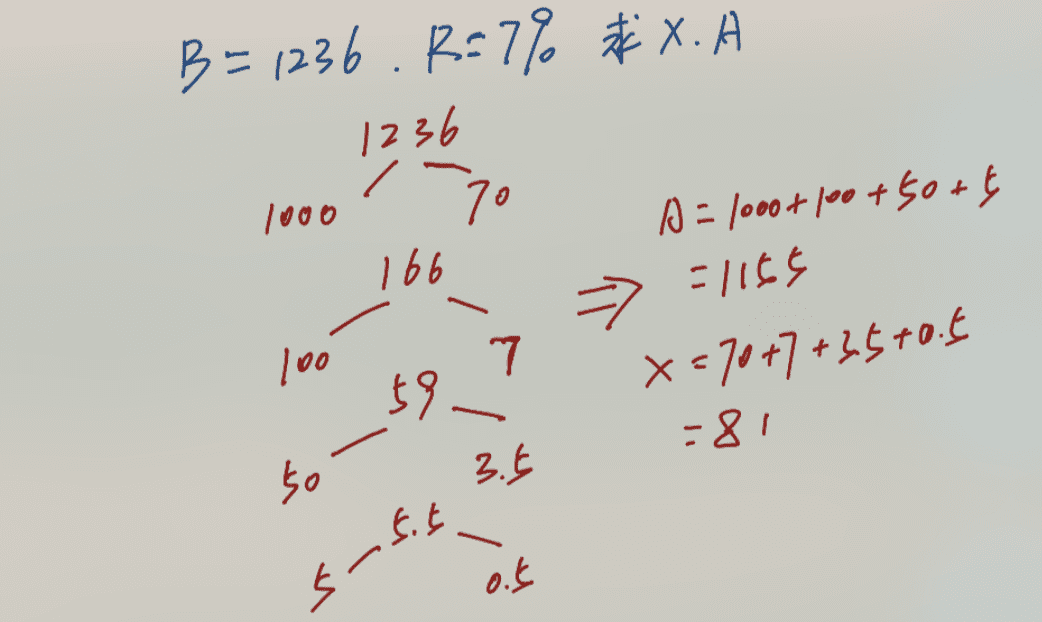 B=1236. R=7% 求 X.A
1236
1000 70
166
100 7
59
50 3.5
5.5
5 0.5
⇒
A=1000+100+50+5
=1155
X=70+7+3.5+0.5
=81